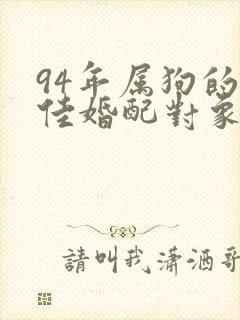 94年属狗的
佳婚配對象
請叫我瀟洒哥